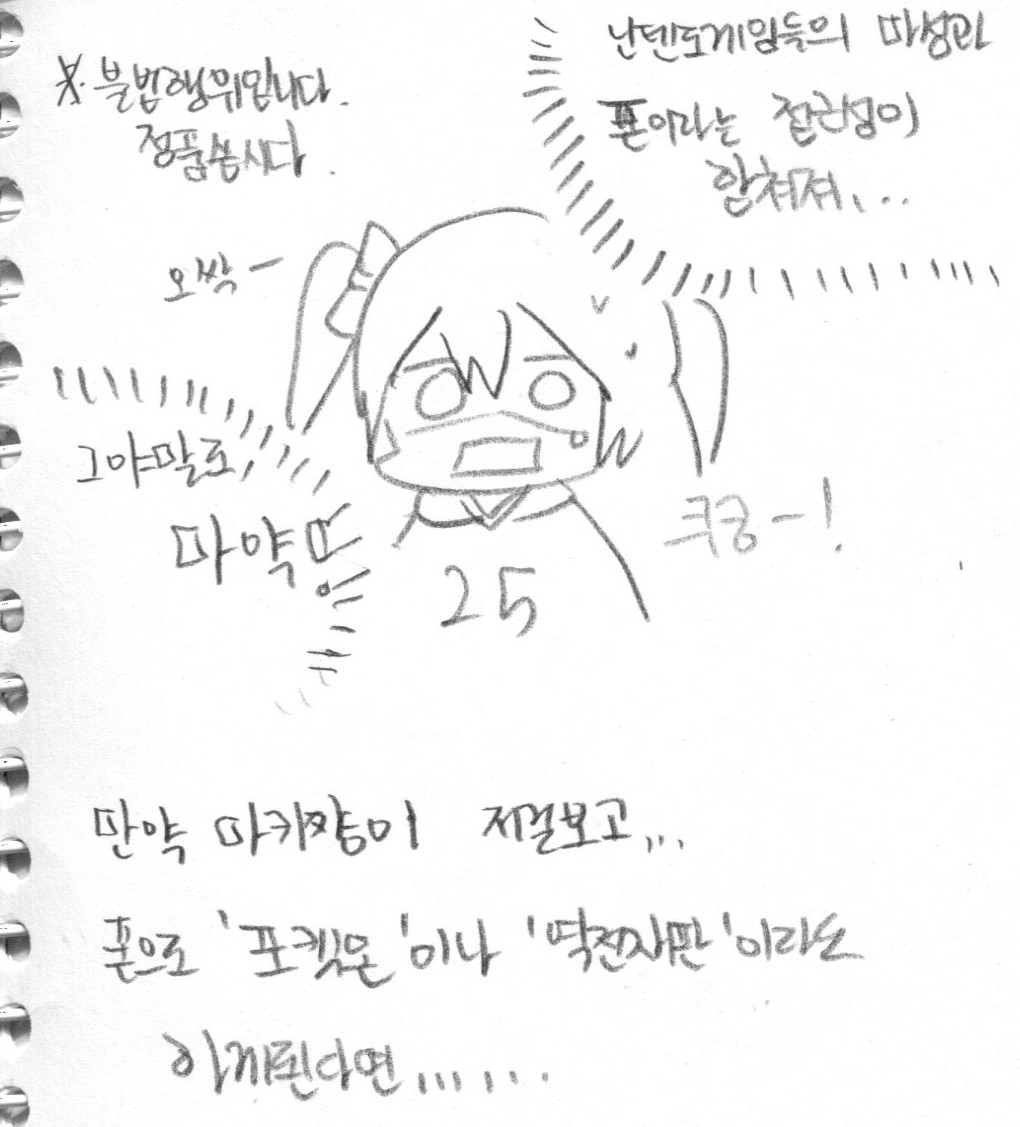 ※불법행위입니다.
정품씁시다.
난텐도게임들의 마성과
폰이라는 접근성이
합쳐져...
오싹-
그야말로,
마약!!
쿠궁-!
25
만약 마키쨩이 저걸보고...
폰으로 '포켓몬'이나 '역전재판'이라도
하게된다면......